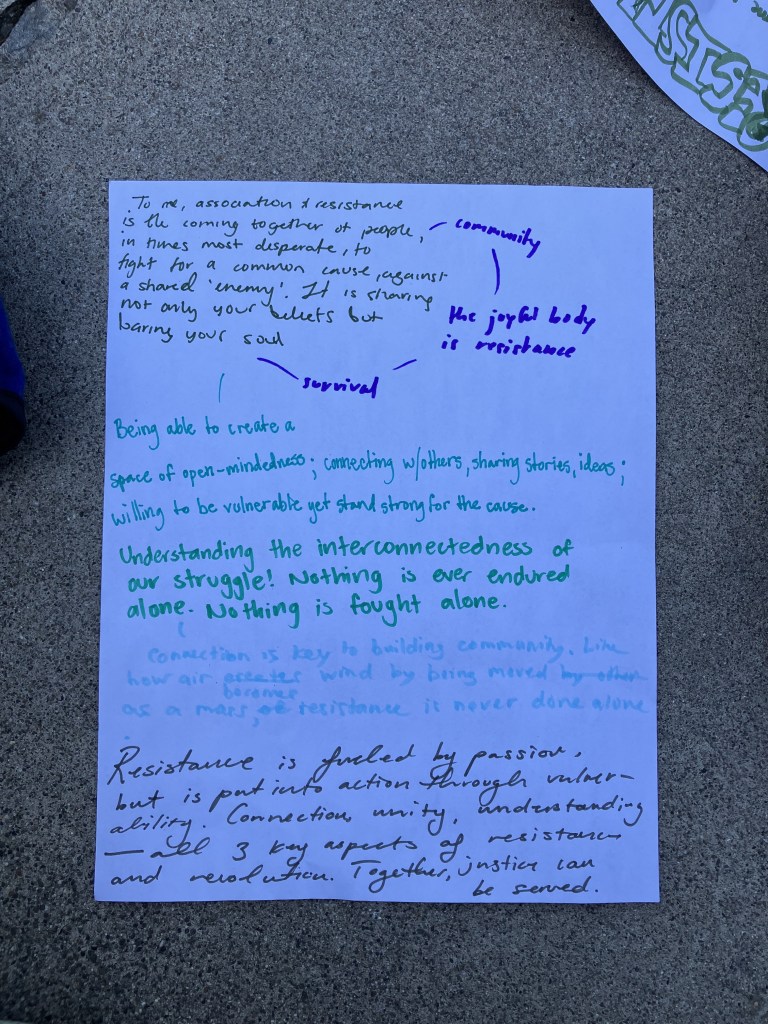 To me, association & resistance
is the coming together of people,
in times most desperate, to
fight for a common cause, against
a shared 'enemy'. It is sharing
not only your beliefs but
baring your soul
community
the joyful body
is resistance
survival
Being able to create a
space of open-mindedness; connecting w/others, sharing stories, ideas;
willing to be vulnerable yet stand strong for the cause.
Understanding the interconnectedness of
our struggle! Nothing is ever endured
alone. Nothing is fought alone.
Connection is key to building community. Like
how air creates wind by being moved by other
becomes
as a mass, resistance is never done alone
Resistance is fueled by passion,
but is put into action through vulner-
ability. Connection, unity, understanding
— all 3 key aspects of resistance
and revolution. Together, justice can
be served.